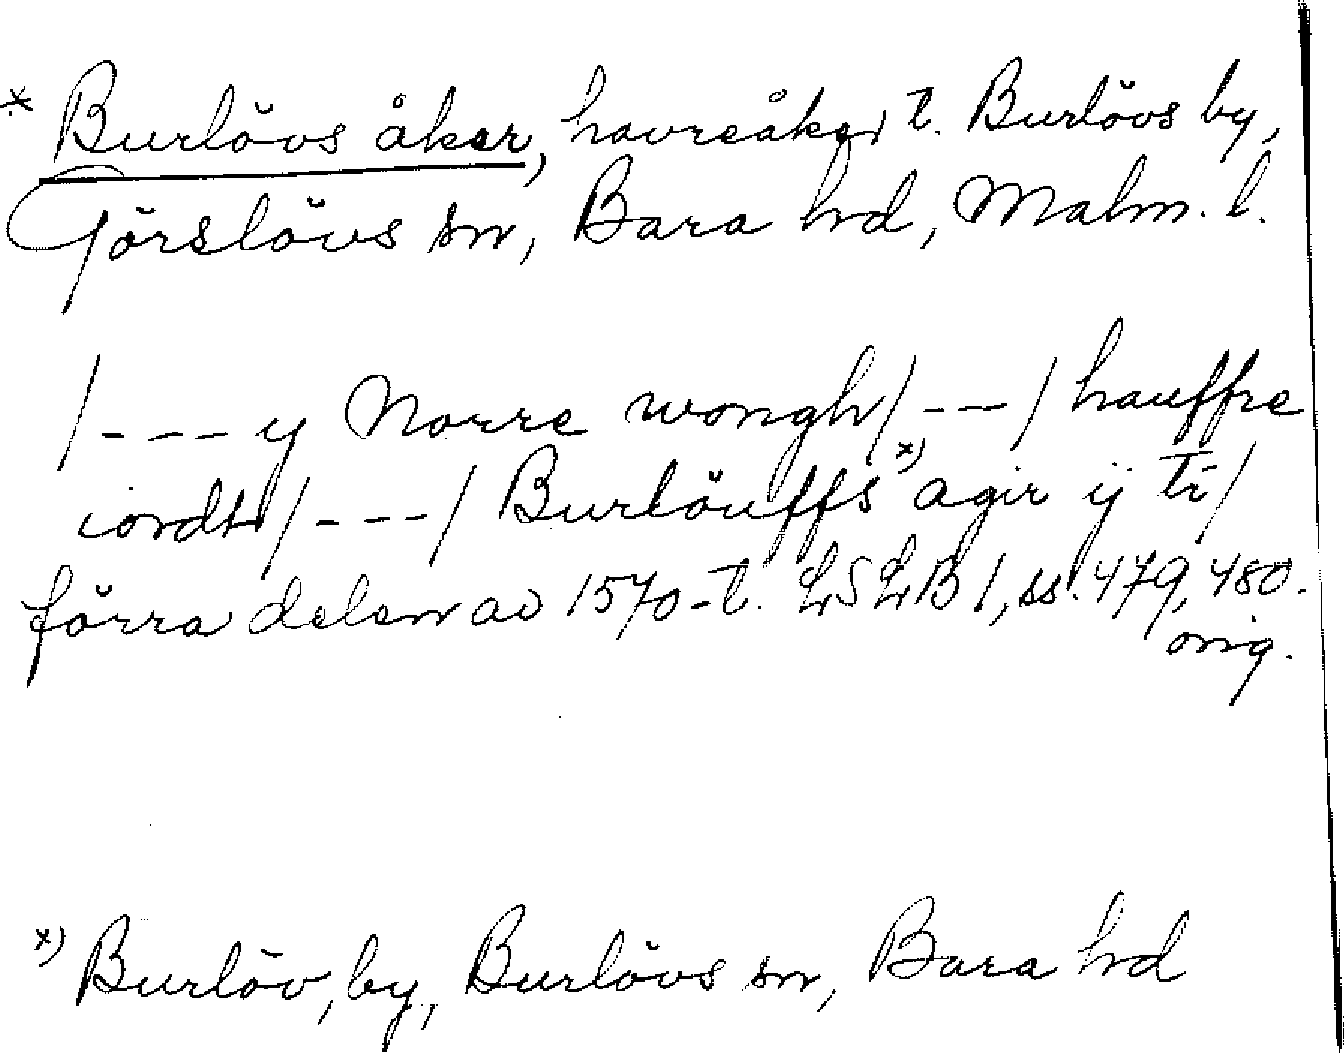 * Burlövs åker, havreåker t. Burlövs by,
Görslövs sn, Bara hd, Malm. l.
/---y Norre wongh/---/hauffre
iordt/---/Burlöuffs x) agir ij
förra delen av 1570-t. LSLB 1, ss. 479, 480.
orig.
x) Burlöv, by, Burlövs sn, Bara hd